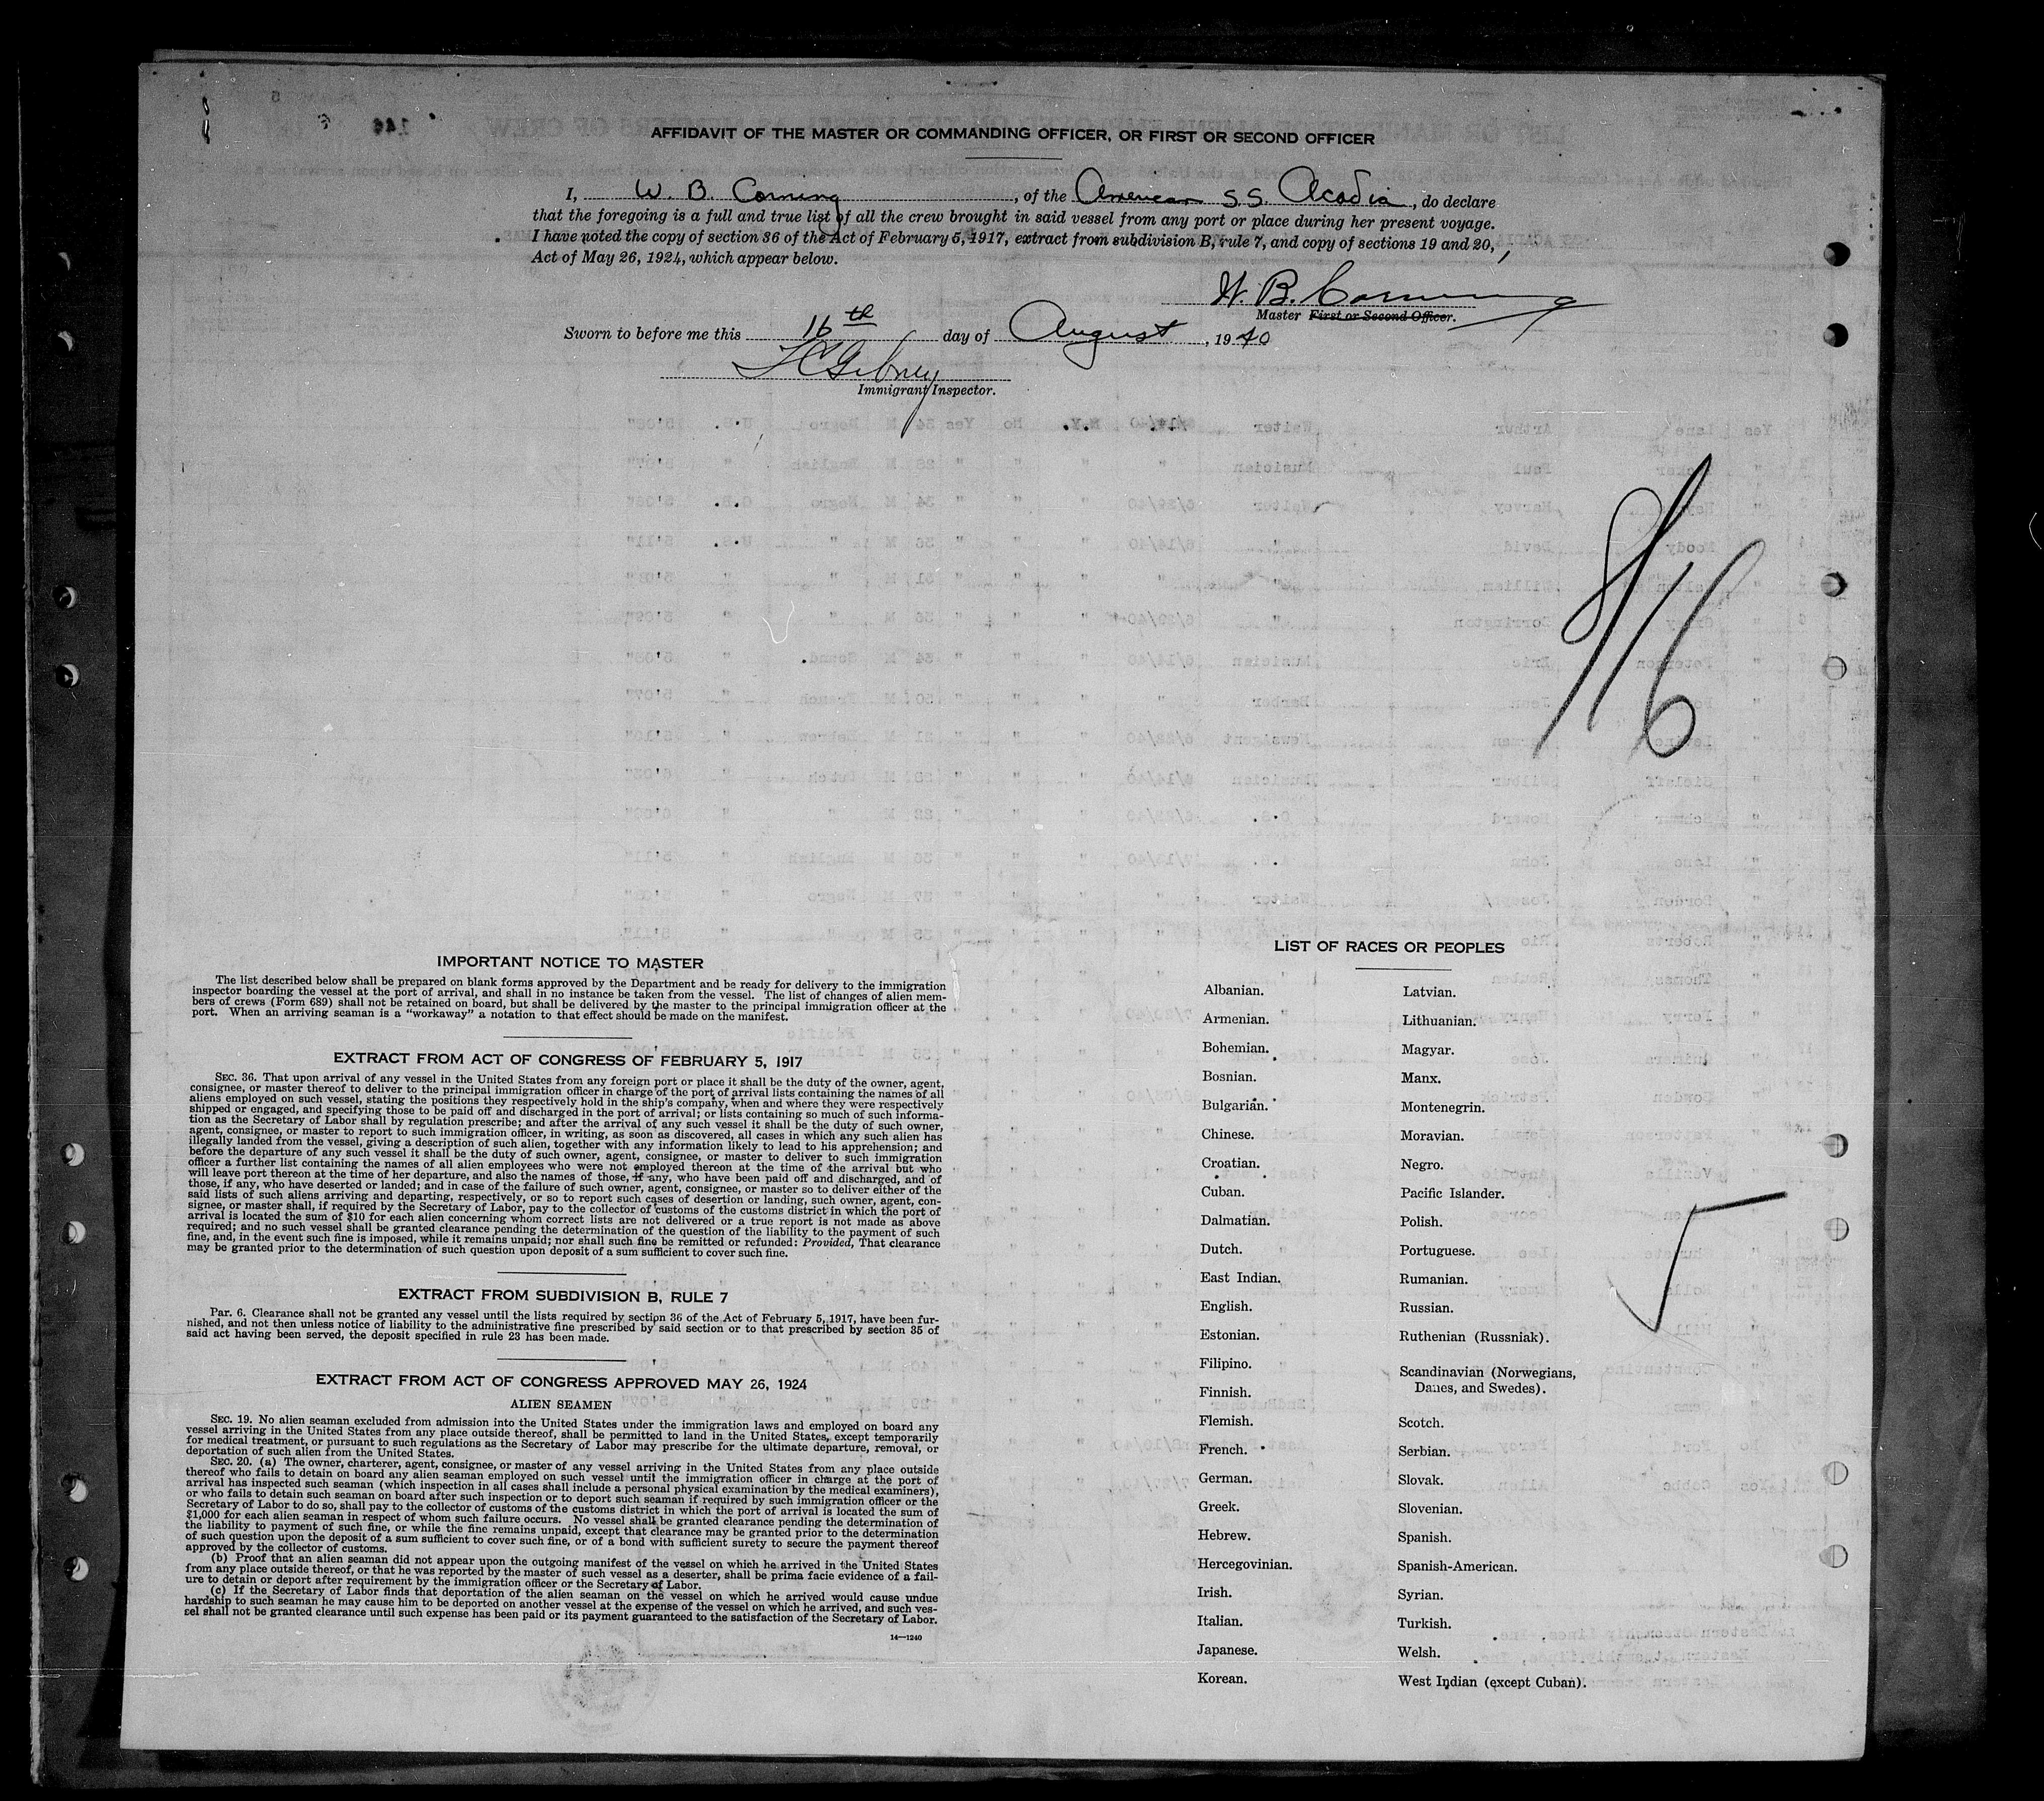 AFFIDAVIT OF THE MASTER OR COMMANDING OFFICER, OR FIRST OR SECOND OFFICER
I, W. B. Corning, of the American S.S. Acadia, do declare
that the foregoing is a full and true list of all the crew brought in said vessel from any port or place during her present voyage.
I have noted the copy of section 36 of the Act of February 5, 1917, extract from subdivision B, rule 7, and copy of sections 19 and 20,
Act of May 26, 1924, which appear below.
W. B. Corning
Master First or Second Officer.
Sworn to before me this 16th day of August, 1940
Immigrant Inspector.
8/16
IMPORTANT NOTICE TO MASTER
The list described below shall be prepared on blank forms approved by the Department and be ready for delivery to the immigration
inspector boarding the vessel at the port of arrival, and shall in no instance be taken from the vessel. The list of changes of alien mem-
bers of crews (Form 689) shall not be retained on board, but shall be delivered by the master to the principal immigration officer at the
port. When an arriving seaman is a "workaway" a notation to that effect should be made on the manifest.
EXTRACT FROM ACT OF CONGRESS OF FEBRUARY 5, 1917
SEC. 36. That upon arrival of any vessel in the United States from any foreign port or place it shall be the duty of the owner, agent,
consignee, or master thereof to deliver to the principal immigration officer in charge of the port of arrival lists containing the names of all
aliens employed on such vessel, stating the positions they respectively hold in the ship's company, when and where they were respectively
shipped or engaged, and specifying those to be paid off and discharged in the port of arrival; or lists containing so much of such informa-
tion as the Secretary of Labor shall by regulation prescribe; and after the arrival of any such vessel it shall be the duty of such owner,
agent, consignee, or master to report to such immigration officer, in writing, as soon as discovered, all cases in which any such alien has
illegally landed from the vessel, giving a description of such alien, together with any information likely to lead to his apprehension; and
before the departure of any such vessel it shall be the duty of such owner, agent, consignee, or master to deliver to such immigration
officer a further list containing the names of all alien employees who were not employed thereon at the time of the arrival but who
will leave port thereon at the time of her departure, and also the names of those, if any, who have been paid off and discharged, and of
those, if any, who have deserted or landed; and in case of the failure of such owner, agent, consignee, or master so to deliver either of the
said lists of such aliens arriving and departing, respectively, or so to report such cases of desertion or landing, such owner, agent, con-
signee, or master shall, if required by the Secretary of Labor, pay to the collector of customs of the customs district in which the port of
arrival is located the sum of $10 for each alien concerning whom correct lists are not delivered or a true report is not made as above
required; and no such vessel shall be granted clearance pending the determination of the question of the liability to the payment of such
fine, and, in the event such fine is imposed, while it remains unpaid; nor shall such fine be remitted or refunded: Provided, That clearance
may be granted prior to the determination of such question upon deposit of a sum sufficient to cover such fine.
EXTRACT FROM SUBDIVISION B, RULE 7
Par. 6. Clearance shall not be granted any vessel until the lists required by section 36 of the Act of February 5, 1917, have been fur-
nished, and not then unless notice of liability to the administrative fine prescribed by said section or to that prescribed by section 35 of
said act having been served, the deposit specified in rule 23 has been made.
EXTRACT FROM ACT OF CONGRESS APPROVED MAY 26, 1924
ALIEN SEAMEN
SEC. 19. No alien seaman excluded from admission into the United States under the immigration laws and employed on board any
vessel arriving in the United States from any place outside thereof, shall be permitted to land in the United States, except temporarily
for medical treatment, or pursuant to such regulations as the Secretary of Labor may prescribe for the ultimate departure, removal, or
deportation of such alien from the United States.
SEC. 20. (a) The owner, charterer, agent, consignee, or master of any vessel arriving in the United States from any place outside
thereof who fails to detain on board any alien seaman employed on such vessel until the immigration officer in charge at the port of
arrival has inspected such seaman (which inspection in all cases shall include a personal physical examination by the medical examiners),
or who fails to detain such seaman on board after such inspection or to deport such seaman if required by such immigration officer or the
Secretary of Labor to do so, shall pay to the collector of customs of the customs district in which the port of arrival is located the sum of
$1,000 for each alien seaman in respect of whom such failure occurs. No vessel shall be granted clearance pending the determination of
the liability to payment of such fine, or while the fine remains unpaid, except that clearance may be granted prior to the determination
of such question upon the deposit of a sum sufficient to cover such fine, or of a bond with sufficient surety to secure the payment thereof
approved by the collector of customs.
(b) Proof that an alien seaman did not appear upon the outgoing manifest of the vessel on which he arrived in the United States
from any place outside thereof, or that he was reported by the master of such vessel as a deserter, shall be prima facie evidence of a fail-
ure to detain or deport after requirement by the immigration officer or the Secretary of Labor.
(c) If the Secretary of Labor finds that deportation of the alien seaman on the vessel on which he arrived would cause undue
hardship to such seaman he may cause him to be deported on another vessel at the expense of the vessel on which he arrived, and such ves-
sel shall not be granted clearance until such expense has been paid or its payment guaranteed to the satisfaction of the Secretary of Labor.
14—1240
LIST OF RACES OR PEOPLES
Albanian.
Armenian.
Bohemian.
Bosnian.
Bulgarian.
Chinese.
Croatian.
Cuban.
Dalmatian.
Dutch.
East Indian.
English.
Estonian.
Filipino.
Finnish.
Flemish.
French.
German.
Greek.
Hebrew.
Hercegovinian.
Irish.
Italian.
Japanese.
Korean.
Latvian.
Lithuanian.
Magyar.
Manx.
Montenegrin.
Moravian.
Negro.
Pacific Islander.
Polish.
Portuguese.
Rumanian.
Russian.
Ruthenian (Russniak).
Scandinavian (Norwegians,
Danes, and Swedes).
Scotch.
Serbian.
Slovak.
Slovenian.
Spanish.
Spanish-American.
Syrian.
Turkish.
Welsh.
West Indian (except Cuban).